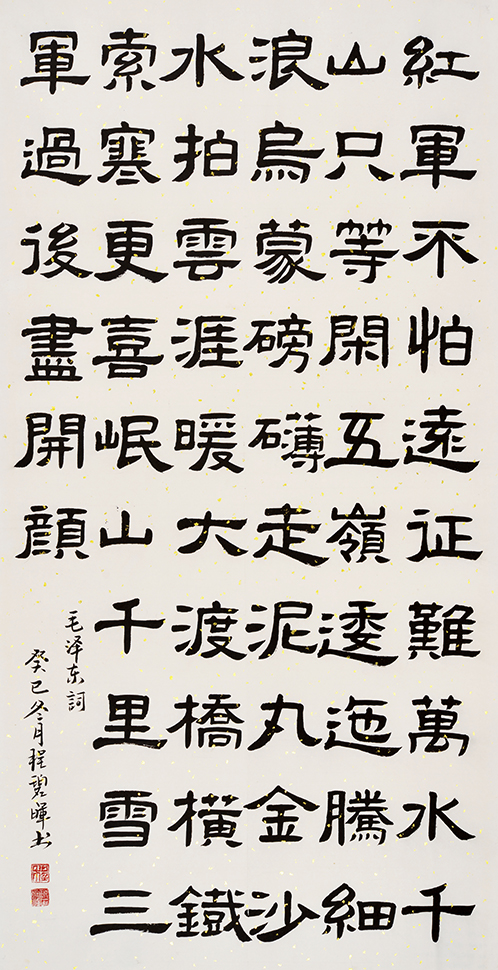 紅軍不怕遠征難萬水千
山只等閑五嶺逶迤騰細
浪烏蒙磅礴走泥丸金沙
水拍雲涯暖大渡橋橫鐵
索寒更喜岷山千里雪三
軍過後盡開顏
毛泽东詞
癸巳冬月程碧暉书